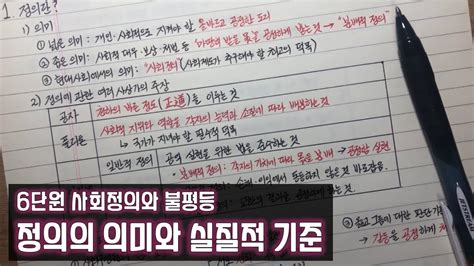 1. 정의란?
1) 의미
① 넓은 의미 : 개인·사회적으로 지켜야 할 올바르고 공정한 도리
② 좁은 의미 : 사회적 대우·보상·처벌 등 "마땅히 받을 몫을 공정하게 받는 것" → "분배적 정의"
③ 현대사회에서의 의미 : "사회정의" (사회제도가 추구해야 할 최고의 덕목)
2) 정의에 관한 여러 사상가의 주장
공자 천하의 바른 정도(正道)를 이루는 것
플라톤 사회적 지위와 역할을 각자의 능력과 소질에 따라 배분하는 것
↳ 국가가 지녀야 할 필수적 덕목
일반적 정의 공익 실현을 위한 법을 준수하는 것
분배적 정의 : 각자의 가치에 따라 몫을 분배 → 공정함 실현
6단원 사회정의와 불평등
정의의 의미와 실질적 기준